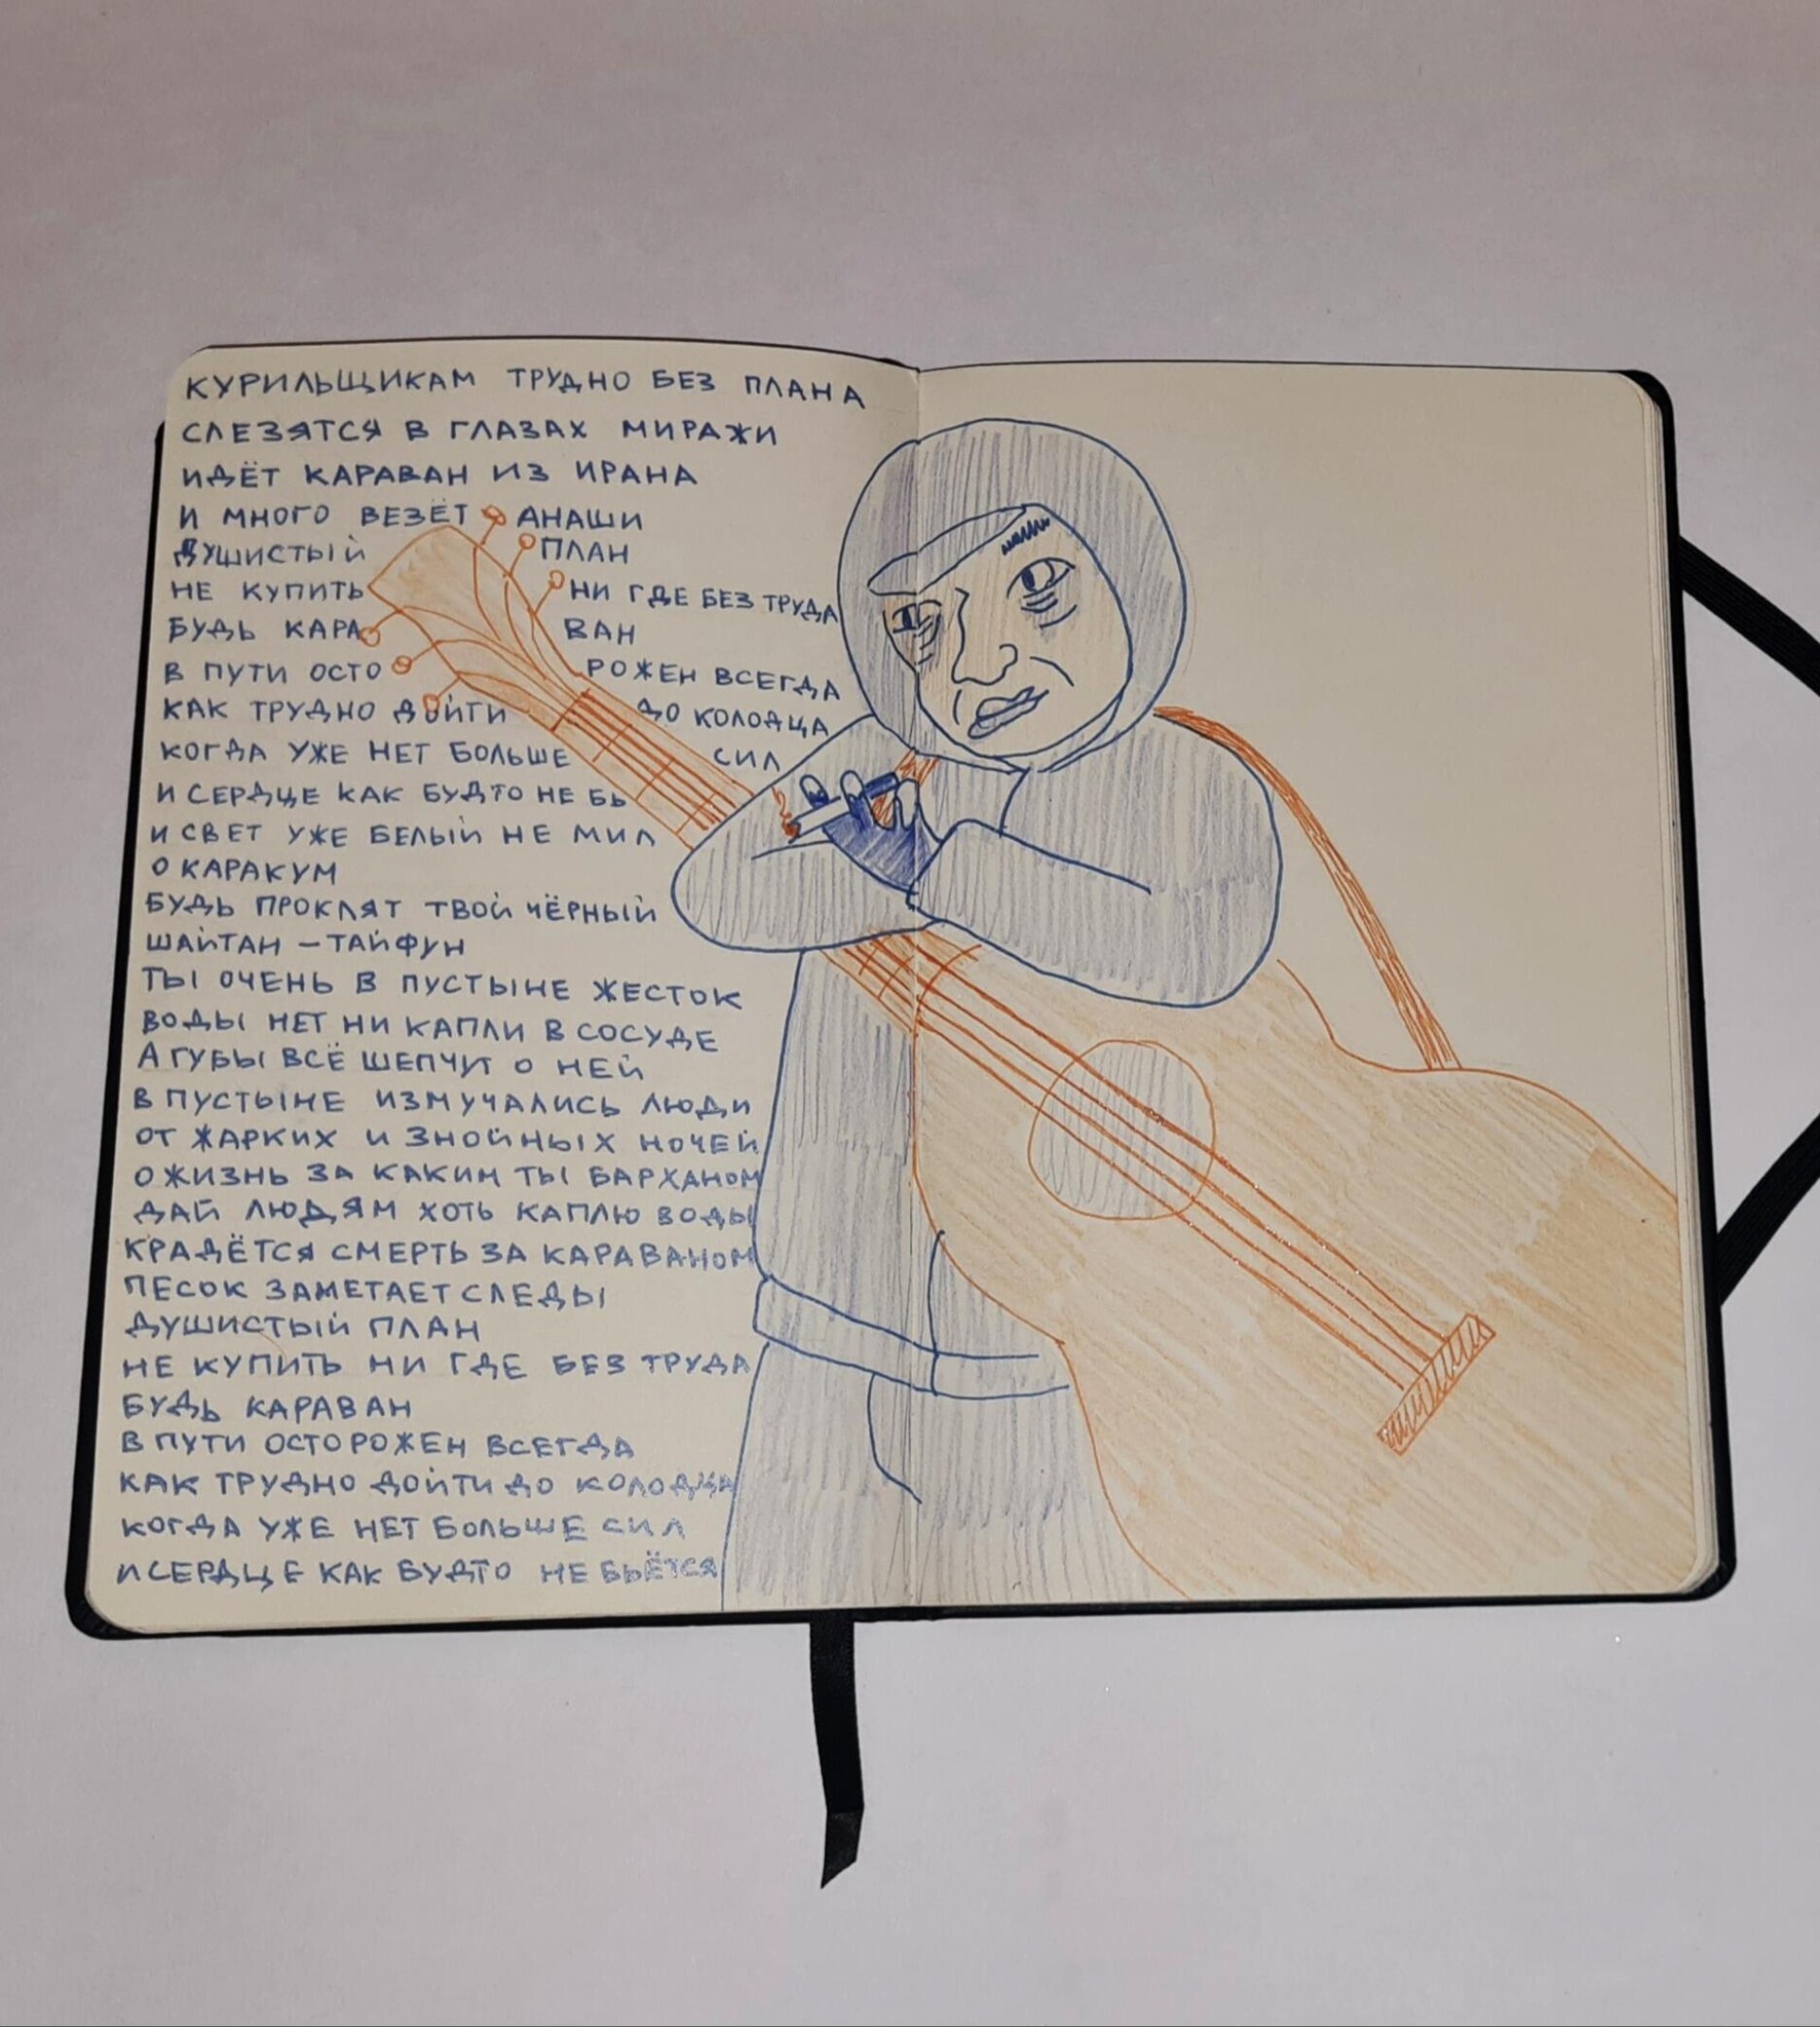 КУРИЛЬЩИКАМ ТРУДНО БЕЗ ПЛАНА
СЛЕЗЯТСЯ В ГЛАЗАХ МИРАЖИ
ИДЁТ КАРАВАН ИЗ ИРАНА
И МНОГО ВЕЗЁТ АНАШИ
ДУШИСТЫЙ ПЛАН
НЕ КУПИТЬ НИ ГДЕ БЕЗ ТРУДА
БУДЬ КАРА ВАН
В ПУТИ ОСТО РОЖЕН ВСЕГДА
КАК ТРУДНО ДОЙТИ ДО КОЛОДЦА
КОГДА УЖЕ НЕТ БОЛЬШЕ СИЛ
И СЕРДЦЕ КАК БУДТО НЕ БЬ
И СВЕТ УЖЕ БЕЛЫЙ НЕ МИЛ
О КАРАКУМ
БУДЬ ПРОКЛЯТ ТВОЙ ЧЁРНЫЙ
ШАЙТАН – ТАЙФУН
ТЫ ОЧЕНЬ В ПУСТЫНЕ ЖЕСТОК
ВОДЫ НЕТ НИ КАПЛИ В СОСУДЕ
А ГУБЫ ВСЁ ШЕПЧУТ О НЕЙ
В ПУСТЫНЕ ИЗМУЧАЛИСЬ ЛЮДИ
ОТ ЖАРКИХ И ЗНОЙНЫХ НОЧЕЙ
О ЖИЗНЬ ЗА КАКИМ ТЫ БАРХАНОМ
ДАЙ ЛЮДЯМ ХОТЬ КАПЛЮ ВОДЫ
КРАДЁТСЯ СМЕРТЬ ЗА КАРАВАНОМ
ПЕСОК ЗАМЕТАЕТ СЛЕДЫ
ДУШИСТЫЙ ПЛАН
НЕ КУПИТЬ НИ ГДЕ БЕЗ ТРУДА
БУДЬ КАРАВАН
В ПУТИ ОСТОРОЖЕН ВСЕГДА
КАК ТРУДНО ДОЙТИ ДО КОЛОДЦА
КОГДА УЖЕ НЕТ БОЛЬШЕ СИЛ
И СЕРДЦЕ КАК БУДТО НЕ БЬЁТСЯ